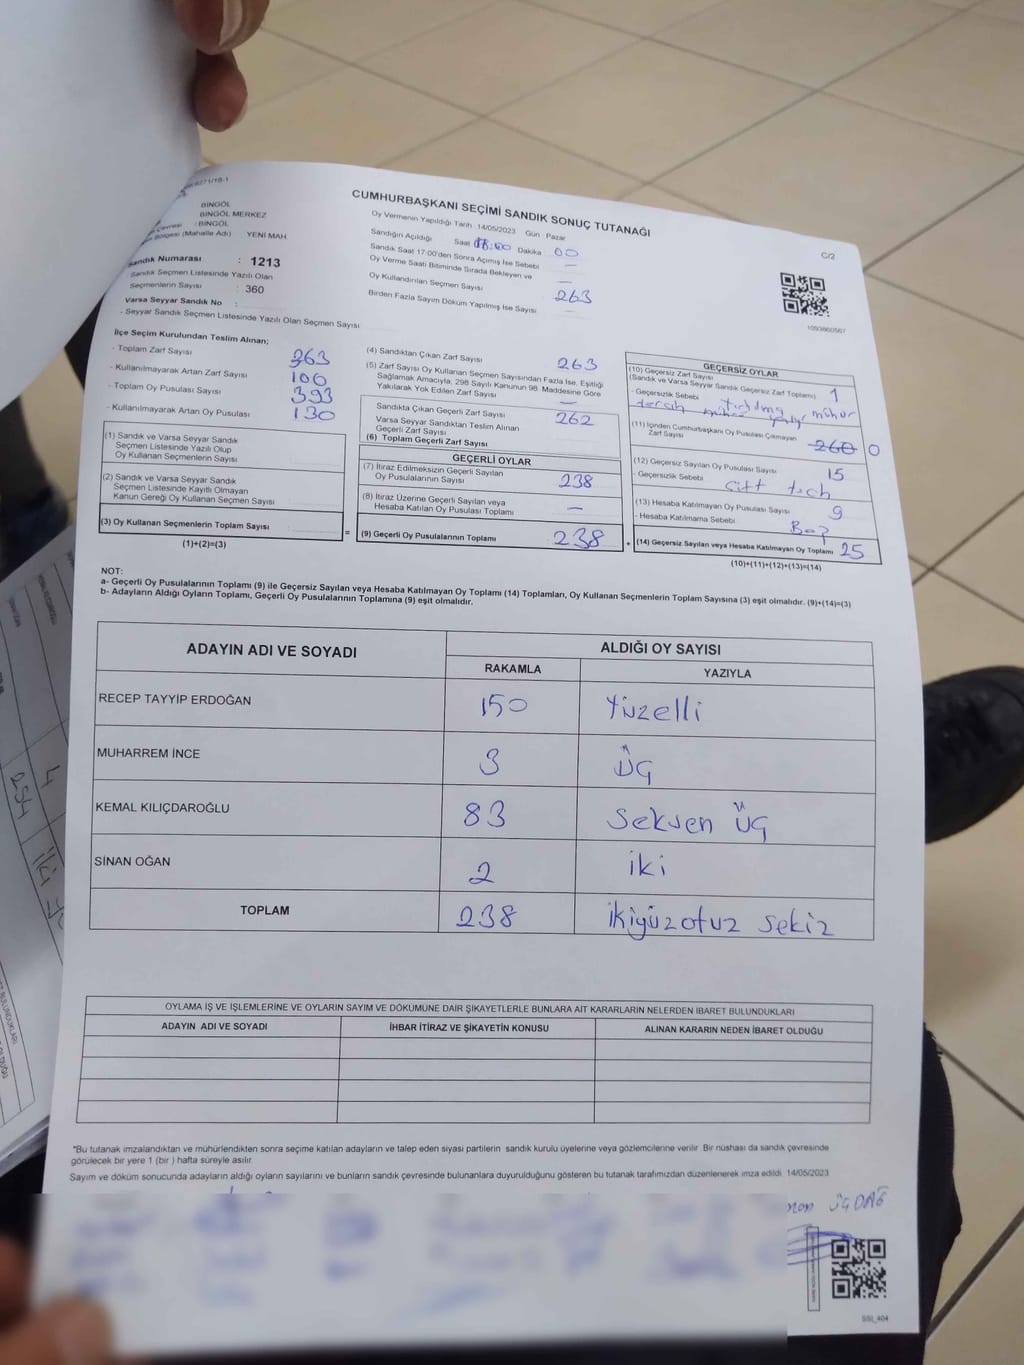 BİNGÖL
BİNGÖL MERKEZ
: BİNGÖL
(Mahalle Adı) YENİ MAH
Sandık Numarası : 1213
Sandık Seçmen Listesinde Yazılı Olan
Seçmenlerin Sayısı : 360
Varsa Seyyar Sandık No :
- Seyyar Sandık Seçmen Listesinde Yazılı Olan Seçmen Sayısı
CUMHURBAŞKANI SEÇİMİ SANDIK SONUÇ TUTANAĞI
Oy Vermenin Yapıldığı Tarih 14/05/2023 Gün : Pazar
Sandığın Açıldığı Saat Dakika 00
Sandık Saat 17:00'den Sonra Açımış İse Sebebi —
Oy Verme Saati Bitiminde Sırada Bekleyen ve
Oy Kullandırılan Seçmen Sayısı —
Birden Fazla Sayım Döküm Yapılmış İse Sayısı 263
C/2
İlçe Seçim Kurulundan Teslim Alınan;
- Toplam Zarf Sayısı 363
- Kullanılmayarak Artan Zarf Sayısı 100
- Toplam Oy Pusulası Sayısı 393
- Kullanılmayarak Artan Oy Pusulası 130
(1) Sandık ve Varsa Seyyar Sandık
Seçmen Listesinde Yazılı Olup
Oy Kullanan Seçmenlerin Sayısı
(2) Sandık ve Varsa Seyyar Sandık
Seçmen Listesinde Kayıtlı Olmayan
Kanun Gereği Oy Kullanan Seçmen Sayısı
(3) Oy Kullanan Seçmenlerin Toplam Sayısı
(1)+(2)=(3)
(4) Sandıktan Çıkan Zarf Sayısı 263
(5) Zarf Sayısı Oy Kullanan Seçmen Sayısından Fazla İse, Eşitliği
Sağlamak Amacıyla, 298 Sayılı Kanunun 98. Maddesine Göre
Yakılarak Yok Edilen Zarf Sayısı —
Sandıkta Çıkan Geçerli Zarf Sayısı 262
Varsa Seyyar Sandıktan Teslim Alınan
Geçerli Zarf Sayısı
(6) Toplam Geçerli Zarf Sayısı
GEÇERLİ OYLAR
(7) İtiraz Edilmeksizin Geçerli Sayılan
Oy Pusulalarının Sayısı 238
(8) İtiraz Üzerine Geçerli Sayılan veya
Hesaba Katılan Oy Pusulası Toplamı —
= (9) Geçerli Oy Pusulalarının Toplamı 238 +
GEÇERSİZ OYLAR
(10) Geçersiz Zarf Sayısı
(Sandık ve Varsa Seyyar Sandık Geçersiz Zarf Toplamı) 1
- Geçersizlik Sebebi
tercih mühür
(11) İçinden Cumhurbaşkanı Oy Pusulası Çıkmayan
Zarf Sayısı 260 0
(12) Geçersiz Sayılan Oy Pusulası Sayısı 15
- Geçersizlik Sebebi Çift terch
(13) Hesaba Katılmayan Oy Pusulası Sayısı 9
- Hesaba Katılmama Sebebi Boş
(14) Geçersiz Sayılan veya Hesaba Katılmayan Oy Toplamı 25
(10)+(11)+(12)+(13)=(14)
NOT:
a- Geçerli Oy Pusulalarının Toplamı (9) ile Geçersiz Sayılan veya Hesaba Katılmayan Oy Toplamı (14) Toplamları, Oy Kullanan Seçmenlerin Toplam Sayısına (3) eşit olmalıdır. (9)+(14)=(3)
b- Adayların Aldığı Oyların Toplamı, Geçerli Oy Pusulalarının Toplamına (9) eşit olmalıdır.
ADAYIN ADI VE SOYADI ALDIĞI OY SAYISI
RAKAMLA YAZIYLA
RECEP TAYYİP ERDOĞAN 150 Yüzelli
MUHARREM İNCE 3 Üç
KEMAL KILIÇDAROĞLU 83 Seksen üç
SİNAN OĞAN 2 iki
TOPLAM 238 ikiyüzotuz sekiz
OYLAMA İŞ VE İŞLEMLERİNE VE OYLARIN SAYIM VE DÖKÜMÜNE DAİR ŞİKAYETLERLE BUNLARA AİT KARARLARIN NELERDEN İBARET BULUNDUKLARI
ADAYIN ADI VE SOYADI İHBAR İTİRAZ VE ŞİKAYETİN KONUSU ALINAN KARARIN NEDEN İBARET OLDUĞU
*Bu tutanak imzalandıktan ve mühürlendikten sonra seçime katılan adayların ve talep eden siyasi partilerin sandık kurulu üyelerine veya gözlemcilerine verilir. Bir nüshası da sandık çevresinde
görülecek bir yere 1 (bir ) hafta süreyle asılır.
Sayım ve döküm sonucunda adayların aldığı oyların sayılarını ve bunların sandık çevresinde bulunanlara duyurulduğunu gösteren bu tutanak tarafımızdan düzenlenerek imza edildi. 14/05/2023
ÜÇDAĞ
SSI_404